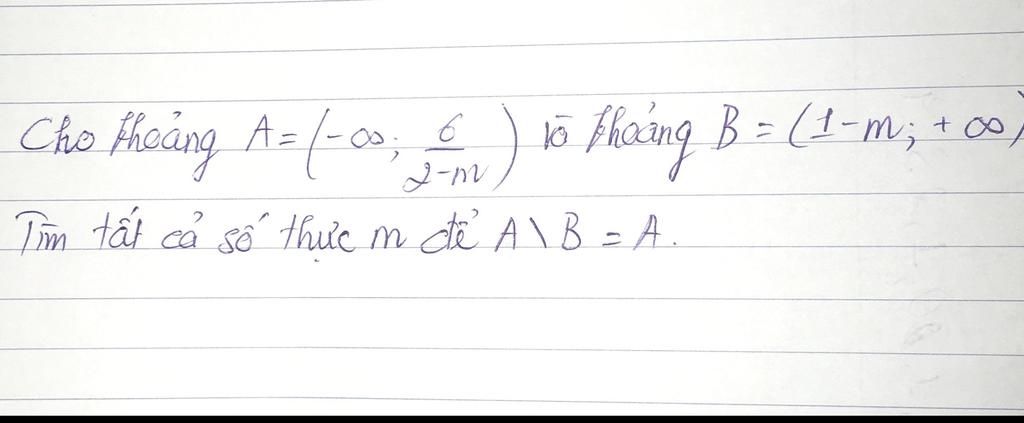 Cho khoảng A = (-∞; 6/(2-m)) và khoảng B = (1-m; +∞)
Tìm tất cả số thực m để A \ B = A.